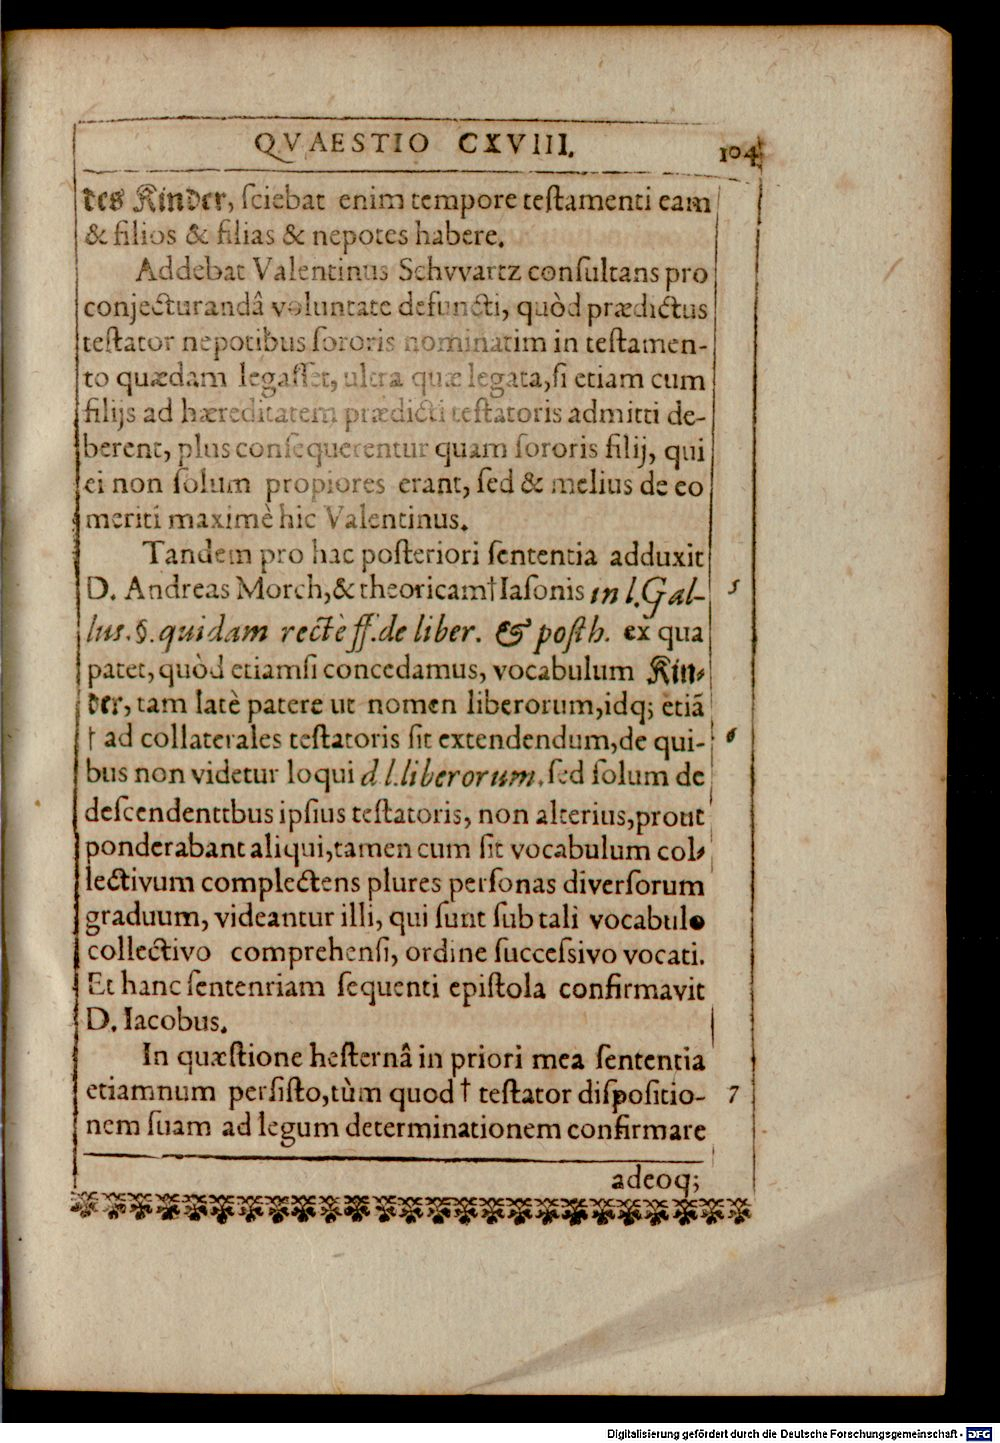 QVAESTIO CXVIII. 104
des Kinder, ſciebat enim tempore teſtamenti eam
& filios & filias & nepotes habere.
Addebat Valentinus Schvvartz conſultans pro
conjecturandâ voluntate defuncti, quòd prædictus
teſtator nepotibus ſororis nominatim in teſtamen-
to quædam legaſſet, ultra quæ legata, ſi etiam cum
filijs ad hæreditatem prædicti teſtatoris admitti de-
berent, plus conſequerentur quam ſororis filij, qui
ei non ſolum propiores erant, ſed & melius de eo
meriti maximè hic Valentinus.
Tandem pro hac poſteriori ſententia adduxit
D. Andreas Morch, & theoricam† Iaſonis in l. Gal- 5
lus. §. quidam rectè ff. de liber. & poſth. ex qua
patet, quòd etiamſi concedamus, vocabulum Kin-
der, tam latè patere ut nomen liberorum, idq; etiã
† ad collaterales teſtatoris ſit extendendum, de qui- 6
bus non videtur loqui d l. liberorum. ſed ſolum de
deſcendentibus ipſius teſtatoris, non alterius, prout
ponderabant aliqui, tamen cum ſit vocabulum col-
lectivum complectens plures perſonas diverſorum
graduum, videantur illi, qui ſunt ſub tali vocabulo
collectivo comprehenſi, ordine ſucceſſivo vocati.
Et hanc ſentenriam ſequenti epiſtola confirmavit
D. Iacobus.
In quæſtione heſternâ in priori mea ſententia
etiamnum perſiſto, tùm quod † teſtator diſpoſitio- 7
nem ſuam ad legum determinationem confirmare
adeoq;
Digitalisierung gefördert durch die Deutsche Forschungsgemeinschaft - DFG